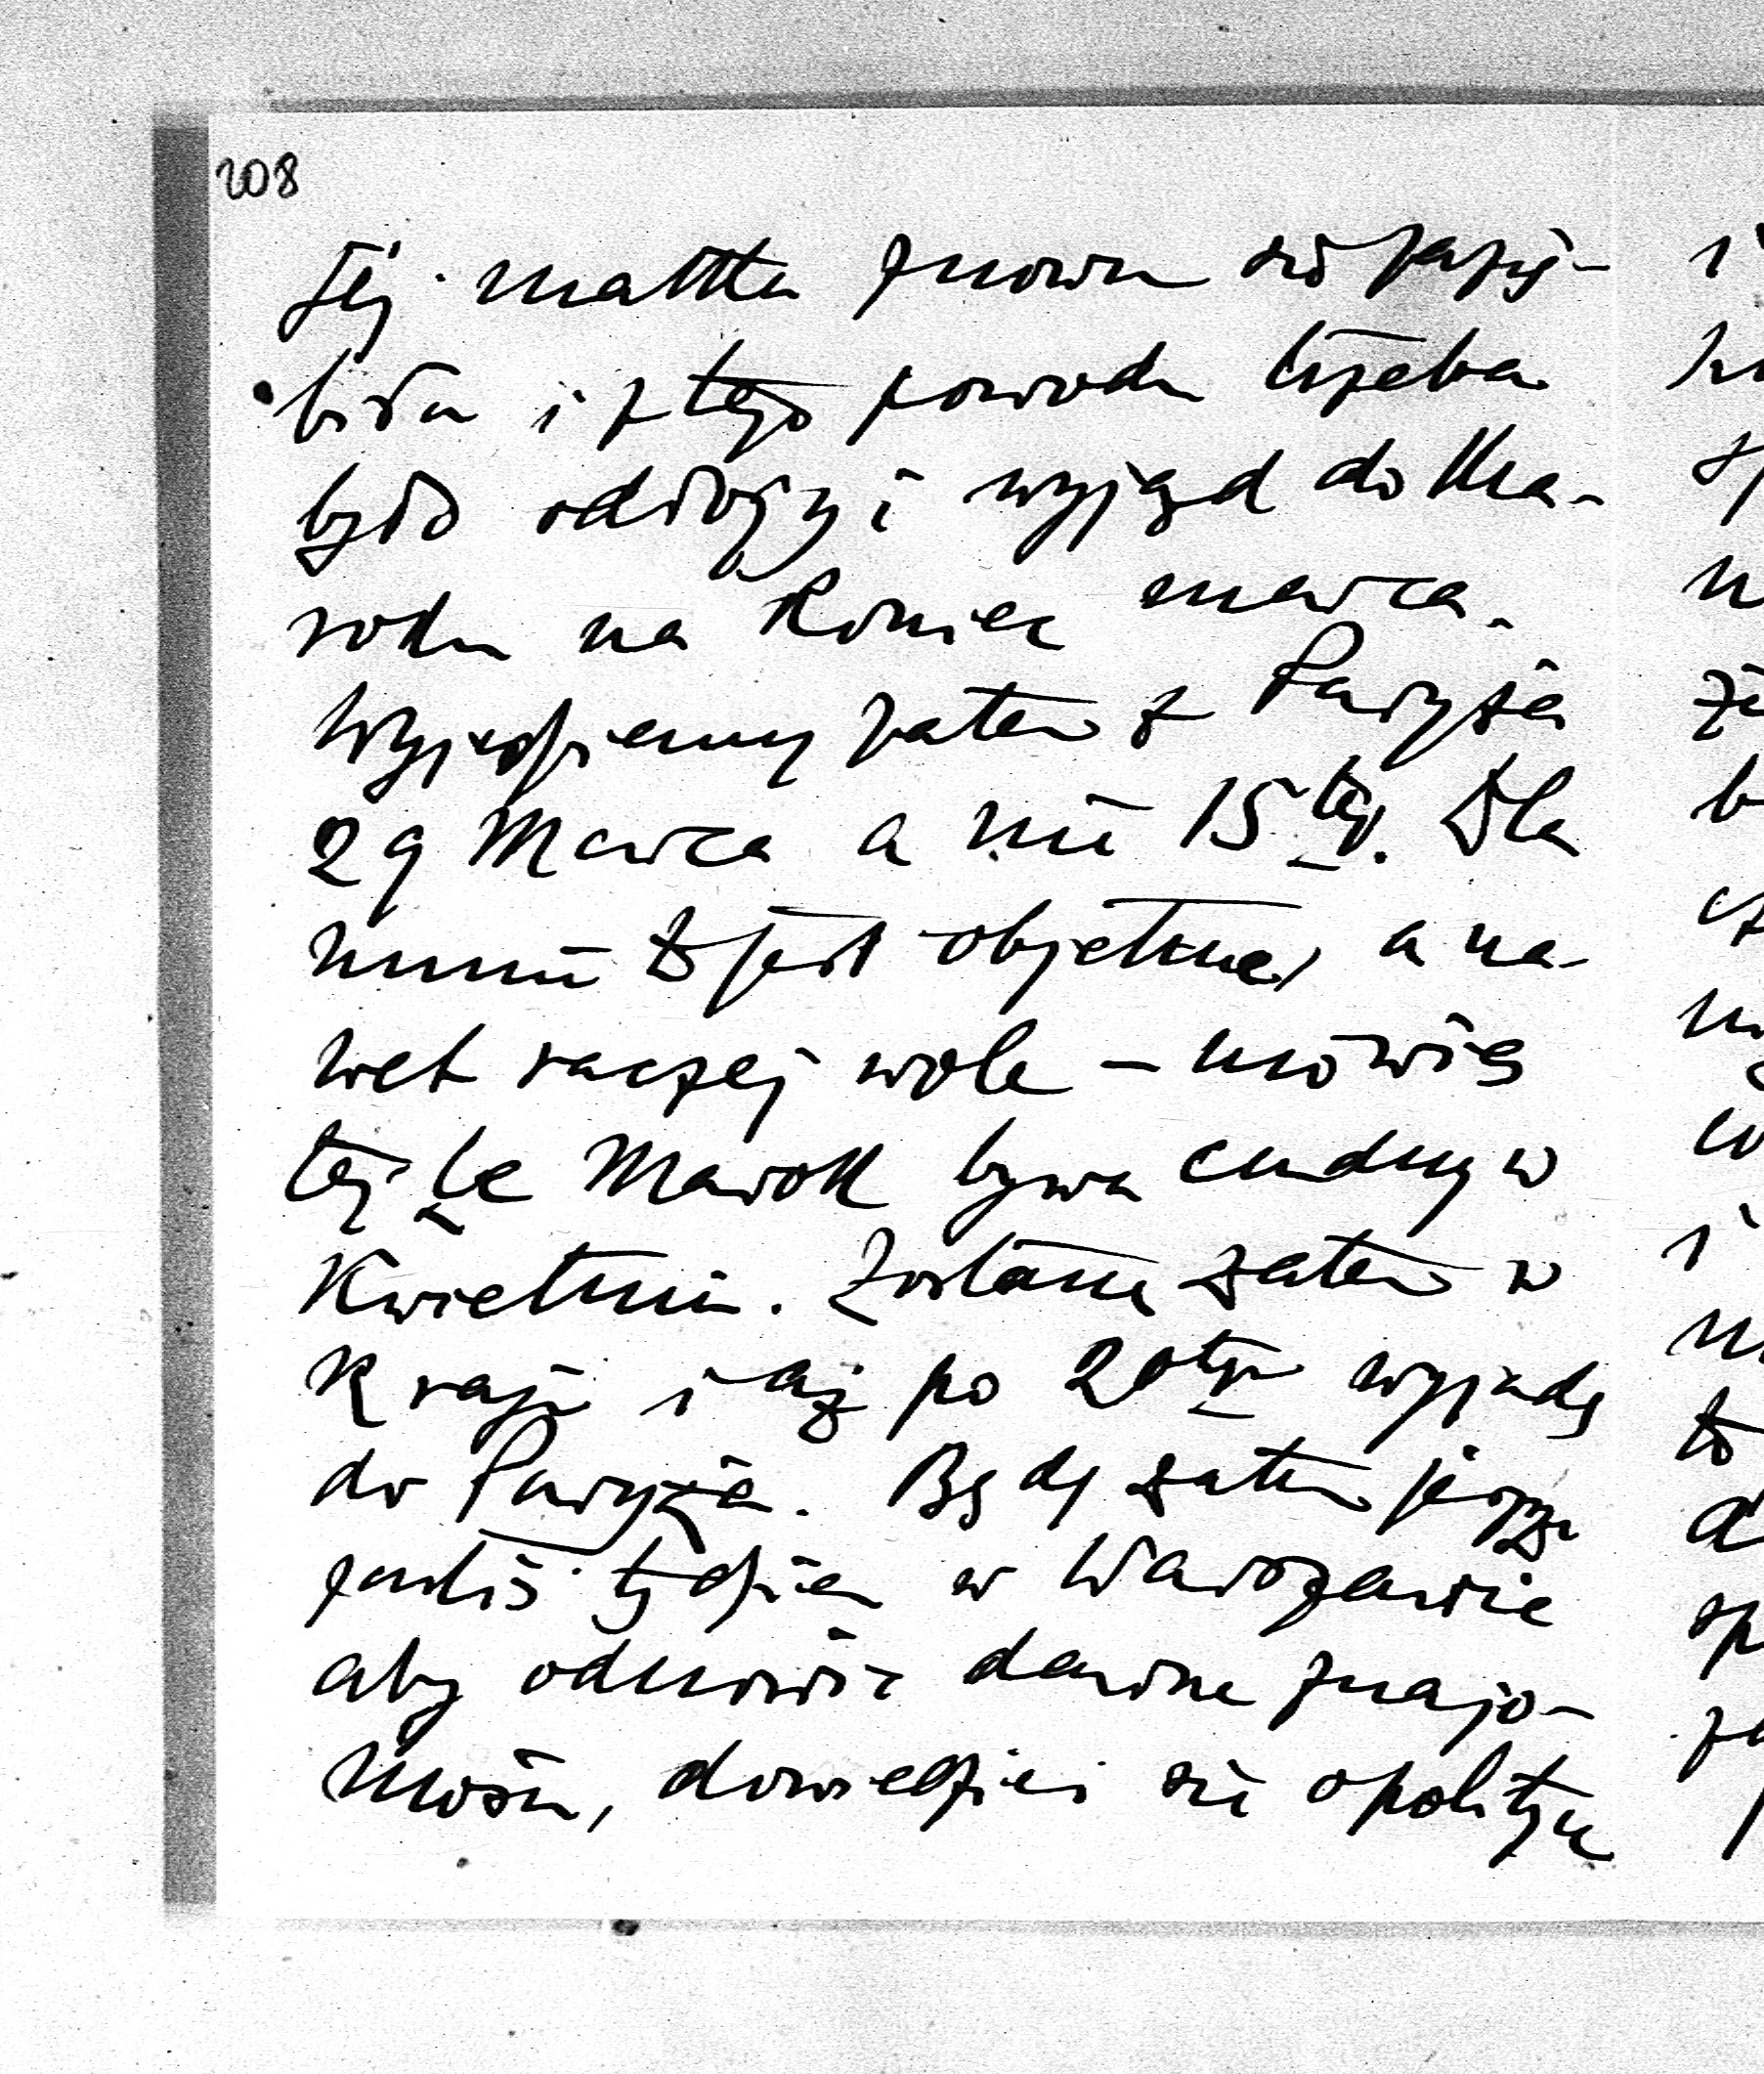 208
Jej matka znowu się zazię-
biła i z tego powodu trzeba
było odłożyć wyjazd do Ma-
roku na koniec marca.
Wyjedziemy zatem z Paryża
29 Marca a nie 15tego. Dla
mnie to jest objetne, a na-
wet raczej wolę – mówią
też że Marok bywa cudny w
Kwietniu. Zostanę zatem w
Kraju i aż po 20tym wyjadę
do Paryża. Będę zatem jeszcze
jakiś tydzień w Warszawie
aby odnowić dawne znajo-
mości, dowiedzieć się o polityce